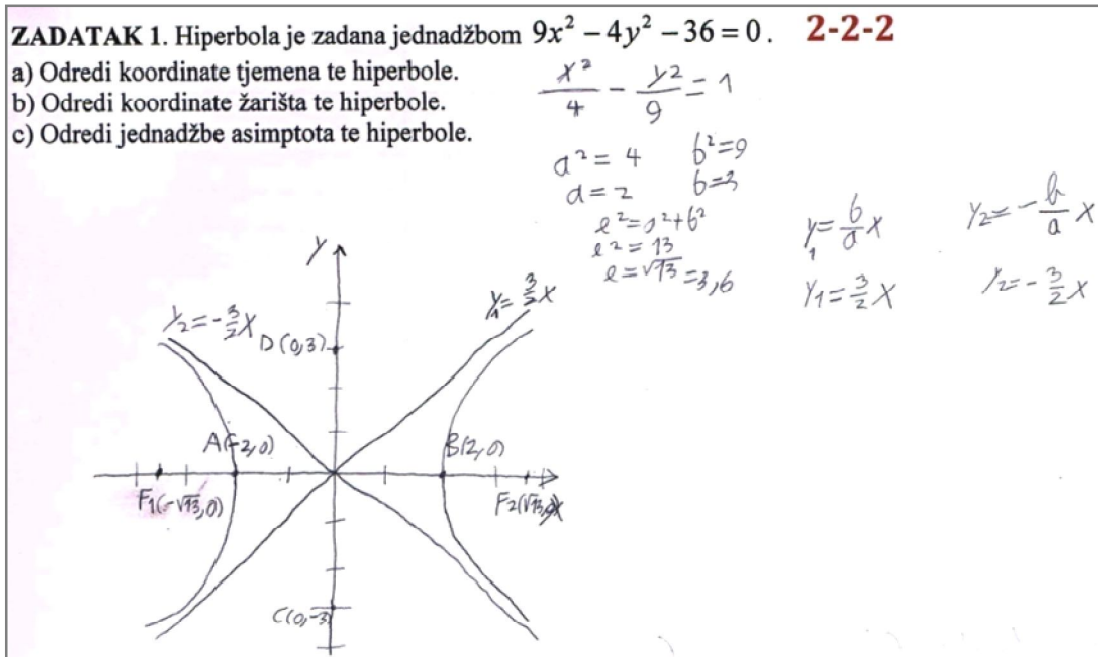 ZADATAK 1. Hiperbola je zadana jednadžbom 9x² − 4y² − 36 = 0. 2-2-2
a) Odredi koordinate tjemena te hiperbole.
b) Odredi koordinate žarišta te hiperbole.
c) Odredi jednadžbe asimptota te hiperbole.
x²/4 − y²/9 = 1
a² = 4 b² = 9
a = 2 b = 3
e² = a² + b²
e² = 13
e = √13 = 3,6
y₁ = b/a x y₂ = − b/a x
y₁ = 3/2 x y₂ = − 3/2 x
y
y₂ = − 3/2 x
y₁ = 3/2 x
D(0,3)
A(−2,0)
B(2,0)
F1(−√13,0)
F2(√13,0)
x
C(0,−3)